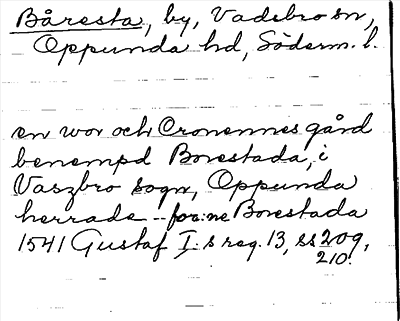 Båresta, by, Vadsbro sn,
Oppunda hd, Söderm. l.
en wor och Cronennes gård
benempd Borestada, i
Vaszbro sogn, Oppunda
herrade -- for:ne Borestada
1541 Gustaf I:s reg. 13, ss 209,
210.